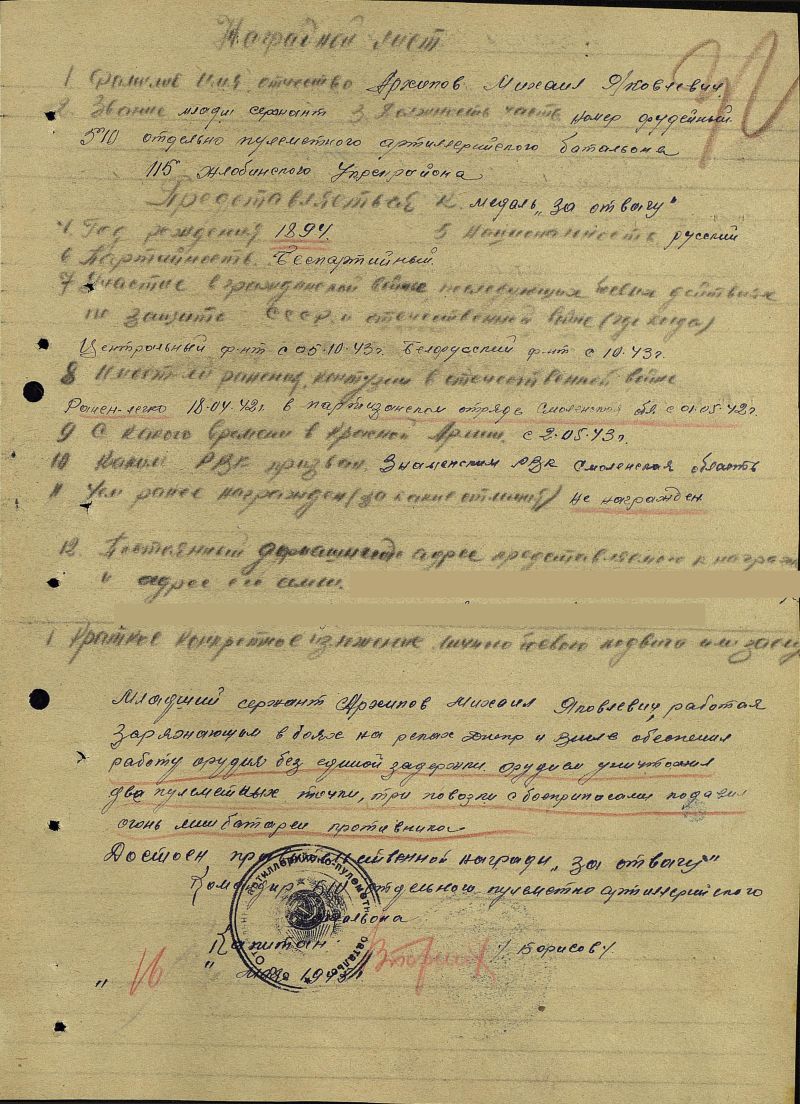 Наградной лист
1 Фамилия Имя, отчество Архипов Михаил Яковлевич
2. Звание младш сержант 3 Должность часть номер орудейный
510 отдельно пулеметного артиллерийского батальона
115 Жлобинского Укрепрайона
Представляеться к медаль „За отвагу"
4 Год рождения 1894. 5 Национальность русский
6 Партийность. Беспартийный
7 Участие в гражданской войне последующих боевых действиях
по защите СССР и отечественной войне (где когда)
Центральный ф-нт с 05.10.43г. Белорусский ф-нт с 10.43г.
8 Имеет ли ранения, контузии в отечественной войне
Ранен-легко 18.04.42г. в партизанском отряде Смоленская обл с 01.05.42г.
9 С какого времени в Красной Армии. с 2.05.43г.
10 Каким РВК призван. Знаменским РВК Смоленская область
11 Чем ранее награжден (за какие отличия) не награжден
12. Постоянный домашний адрес представляемого к награжд
и адрес его
1 Краткое конкретное изложение личного боевого подвига или заслу
Младший сержант Архипов Михаил Яковлевич, работая
Заряжающим в боях на реках Днепр и обеспечил
работу орудия без единой задержки. Орудием уничтожил
два пулеметных точки, три повозки с боеприпасами подавил
огонь минбатареи противника
Достоен правительственной награди „За отвагу"
Командир 510 отдельного пулеметно артиллерийского
батальона
Капитан /Борисов/
" 16